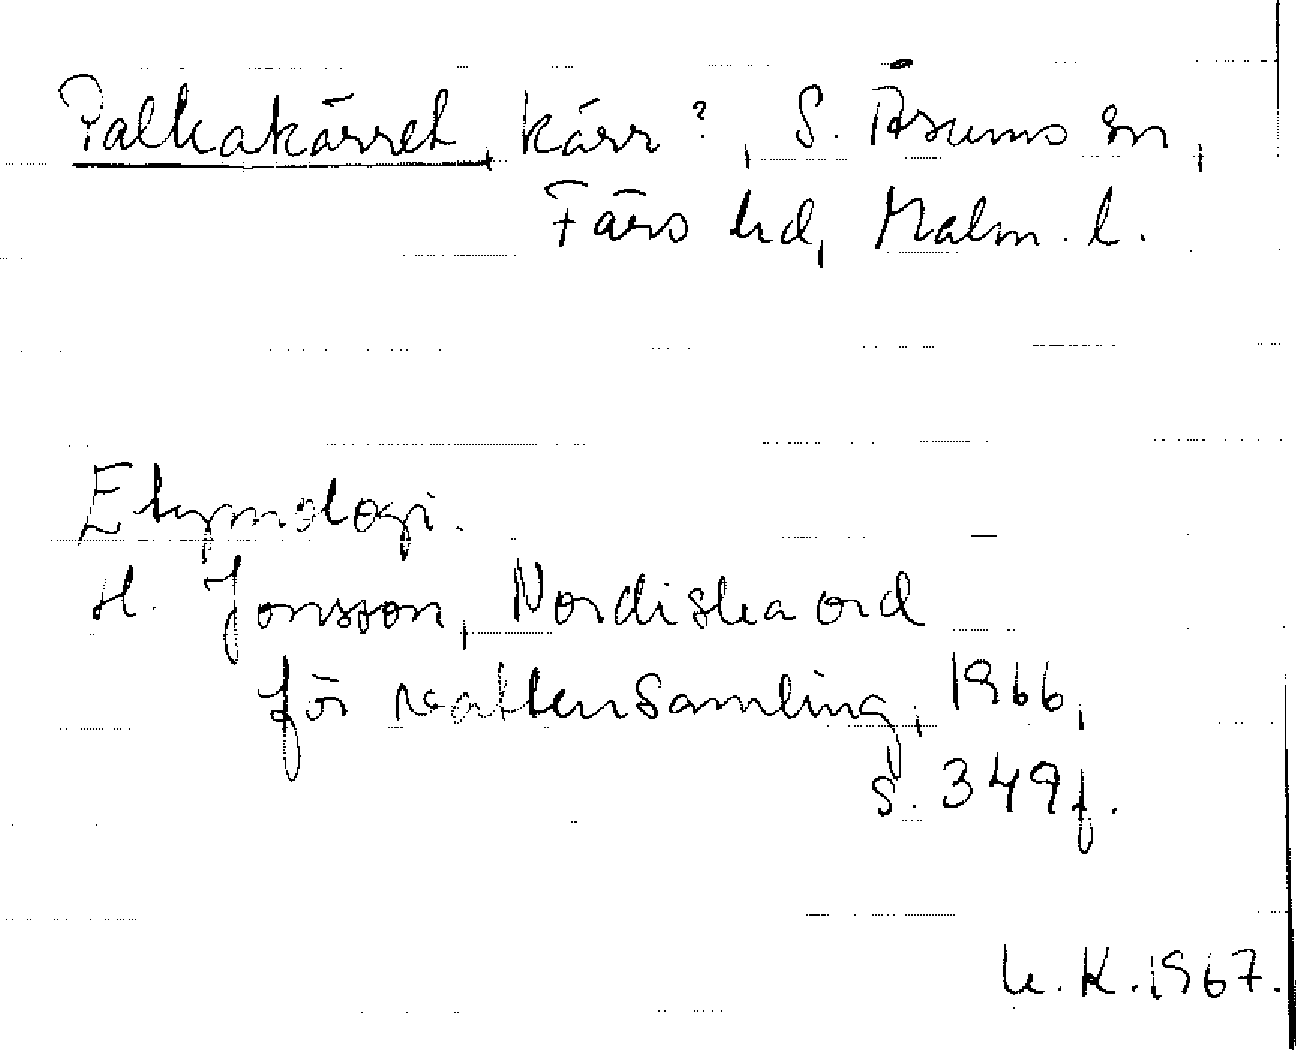 Palkakärret, kärr?, S. Åsums sn,
Färs hd, Malm. l.
Etymologi.
H. Jonsson, Nordiska ord
för vattensamling, 1966,
s. 349f.
K. 1967.